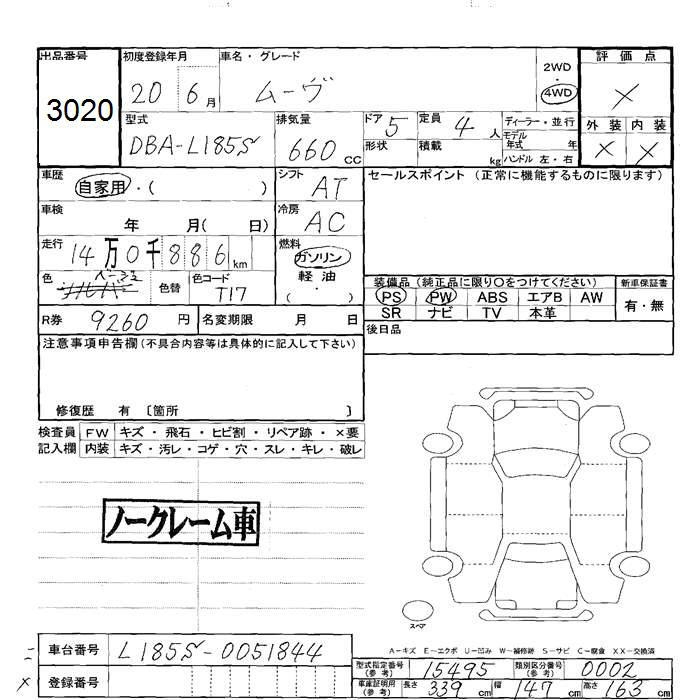 出品番号 初度登録年月 車名・グレード 2WD 評価点
3020 20 6月 ムーヴ ・ 4WD ×
型式 排気量 ドア 5 定員 4人 ディーラー・並行 外装 内装
DBA-L185S 660cc 形状 積載 kg モデル年式 年 × ×
ハンドル 左・右
車歴 自家用・( ) シフト AT セールスポイント (正常に機能するものに限ります)
車検 年 月( 日) 冷房 AC
走行 14万0千886km 燃料 ガソリン
色 ベージュ 色替 色コード T17 軽油 ( ・ )
装備品 (純正品に限り○をつけてください) 新車保証書
PS PW ABS エアB AW 有・無
SR ナビ TV 本革
R券 9260円 名変期限 月 日 後日品
注意事項申告欄 (不具合内容等は具体的に記入して下さい)
修復歴 有 〔箇所 〕
検査員 FW キズ・飛石・ヒビ割・リペア跡・×要
記入欄 内装 キズ・汚レ・コゲ・穴・スレ・キレ・破レ
ノークレーム車
スペア
A-キズ E-エクボ U-凹み W-補修跡 S-サビ C-腐食 XX-交換済
車台番号 L185S-0051844
型式指定番号(参考) 15495 類別区分番号(参考) 0002
× 登録番号
車庫証明用(参考) 長さ 339cm 幅 147cm 高さ 163cm